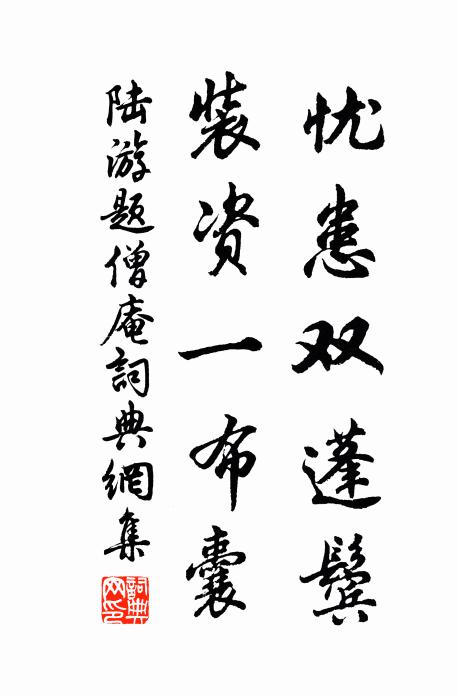 忧患双蓬鬓
装资一布囊
陆游题僧庵詞典網集
詞典